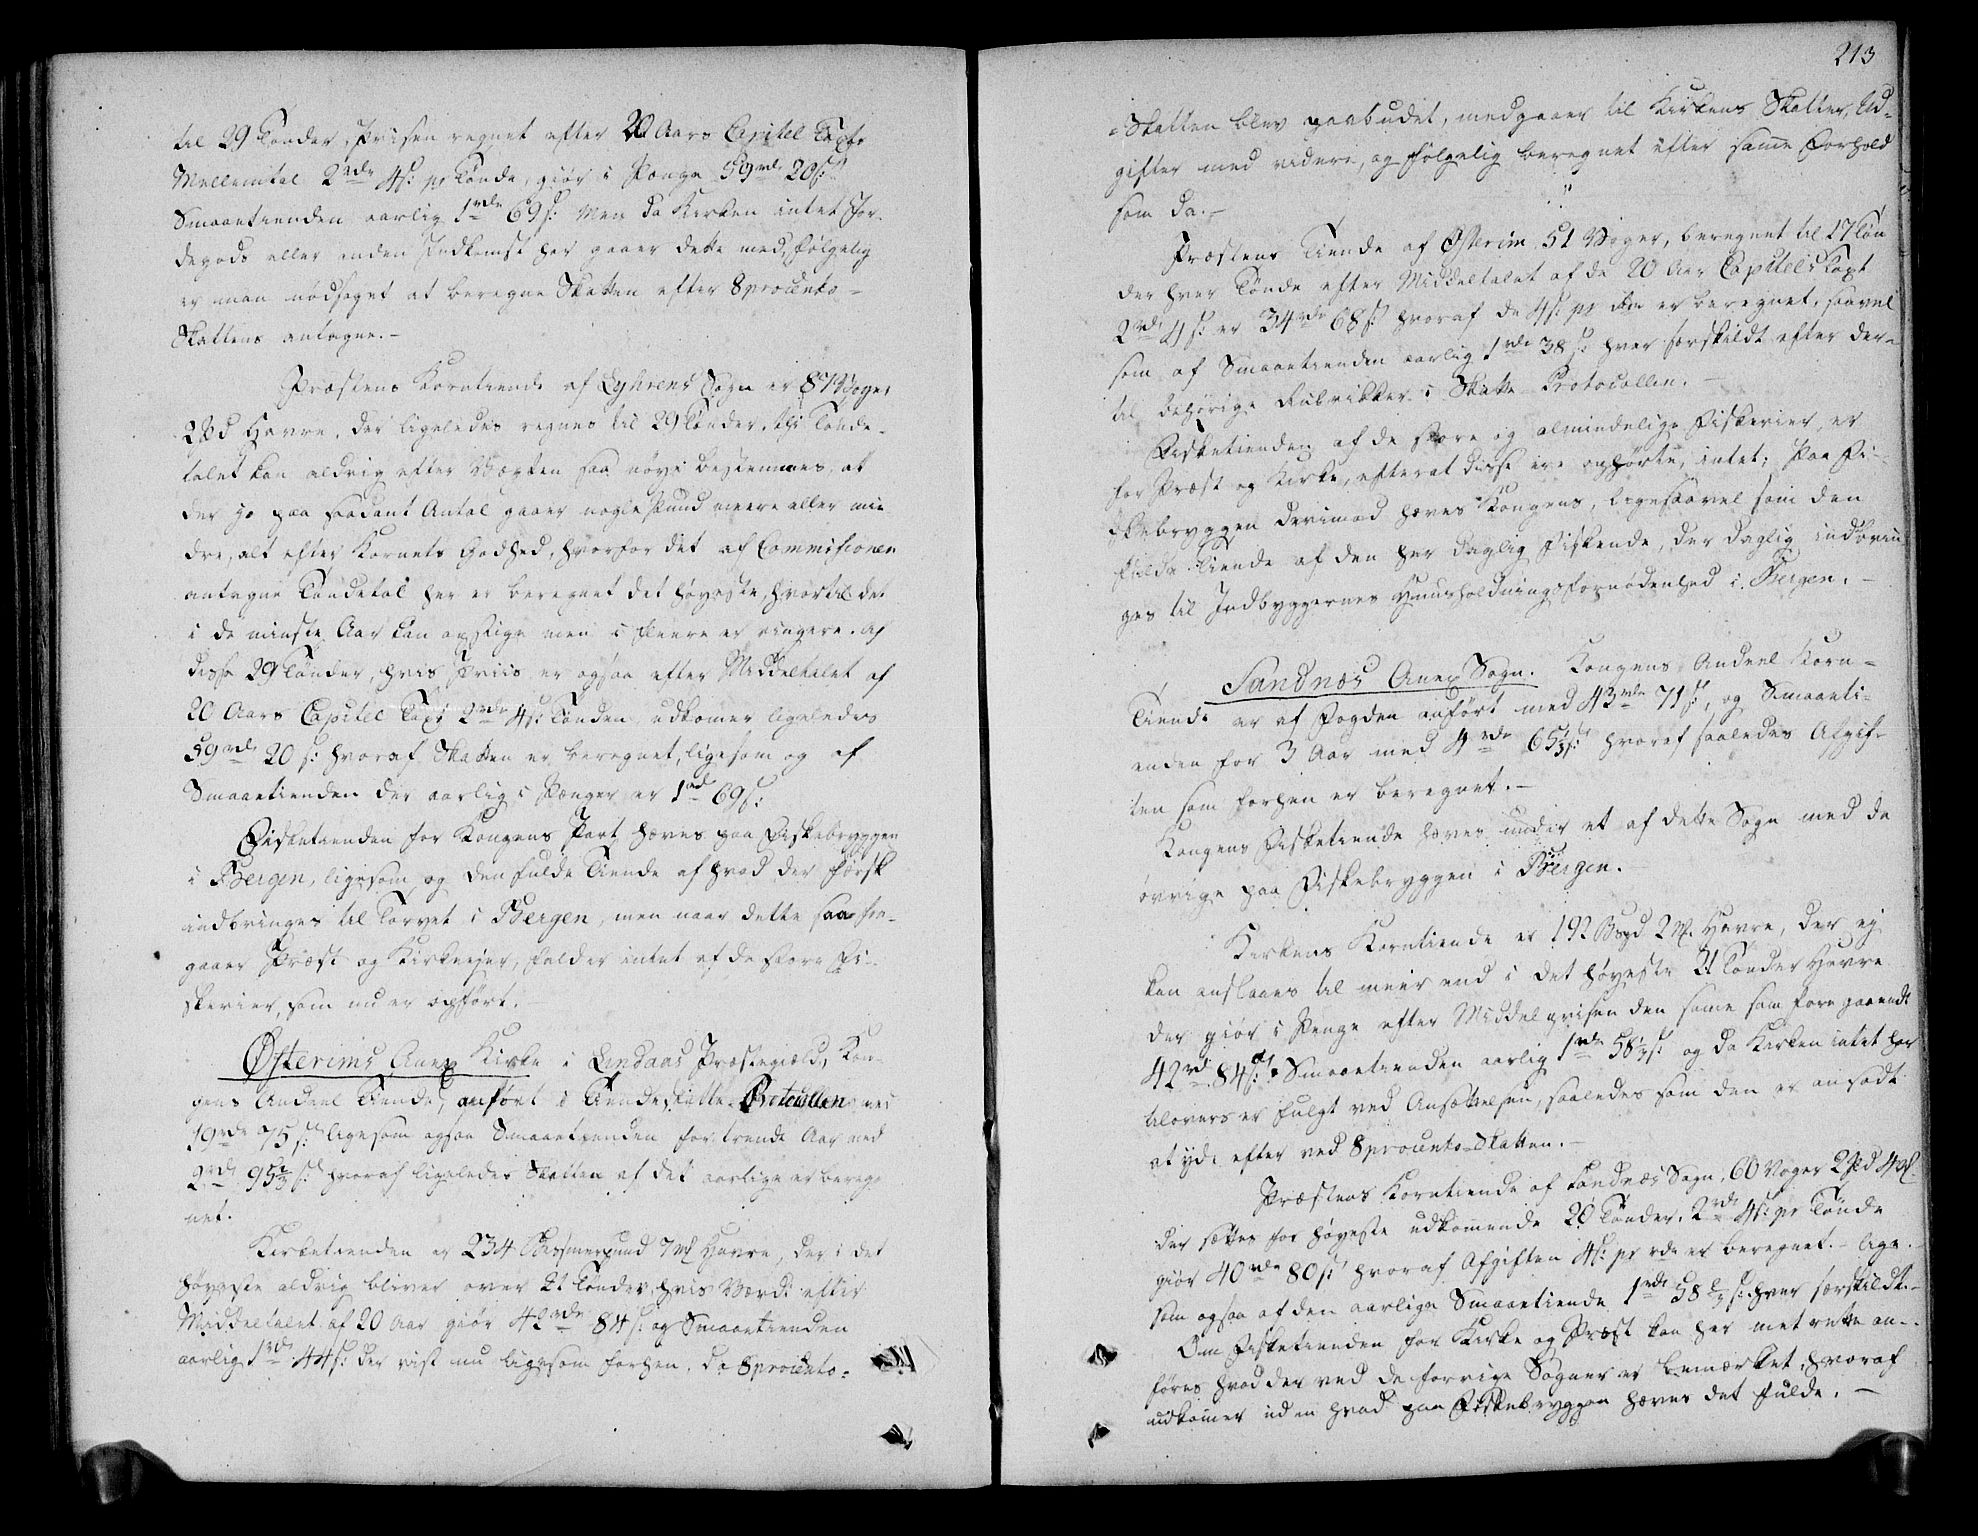 til 29 Tønder, Prisen regnet efter 20 Aars Capitel Taxt
Mellemtal 2rdr 4s: pr Tønde, giør i Penge 59rdr 20s:
Smaaetienden aarlig 1rdr 69s: Men da Kirken intet Jor-
degods eller anden Indkomst har gaaer dette med, følgelig
er man nødsaget at beregne Skatten efter 8procento-
Skattens antagne.-
Præstens Korntiende af Lyhrens Sogn er 87 Voger
2Pd Havre, der ligeledes regnes til 29 Tønder, thi Tønde-
talet kan aldrig efter Vægten saa nøye bestemmes, at
der jo paa saadant Antal gaaer nogle Pund meere eller min
dre, alt efter Kornets Godhed, hvorfor det af Commisionen
antagne Tøndetal her er beregnet det høyeste, hvortil det
i de minste Aar kan opstige men i fleere er ringere. Af
disse 29 Tønder, hvis Priis er ogsaa efter Middeltalet af
20 Aars Capitel Taxt 2rdr 4s: Tønden, udkomer ligeledes
59rdr 20s: hvoraf Skatten er beregnet, ligesom og af
Smaaetienden der aarlig i Penger er 1rd 69s:
Fisketienden for Kongens Part hæves paa Fiskebryggen
i Bergen, ligesom og den fulde Tiende af hvad der færsk
indbringes til Torvet i Bergen, men naar dette saa fra-
gaaer Præst og Kirkeejer, falder intet af de store Fi-
skerier, som nu er ophørt.
Østerims Anex Kirke i Lindaas Præstegield, Kon-
gens Andeel Tiende, anført i Tiendeskatte-Protocollen med
19rdr 75s: ligesom ogsaa Smaaetienden for trende Aar med
2rdr 95 1/3 s: hvoraf ligeledes Skatten af det aarlige er bereg-
net.
Kirketienden er 234 Bismerpund 7 Havre, der i det
høyeste aldrig bliver over 21 Tønder, hvis Værdi efter
Middeltalet af 20 Aar giør 42rdr 84s: og Smaaetienden
aarlig 1rdr 44s: der vist nu ligesom forhen, da 8procento-
213
-Skatten blev paabudet, medgaaer til Kirkens Skatter, Ud-
gifter med videre, og følgelig beregnet efter same Forhold
som da.-
Præstens Tiende af Østerim 51 Voger, beregnet til 17 Tøn
der hver Tønde efter Middeltalet af de 20 Aar Capitels Taxt
2rdr 4s: er 34rdr 68s: hvoraf de 4s: pr rdr er beregnet, saavel
som af Smaaetienden aarlig 1rdr 38s: hver særskildt efter der-
til behørige Rubrikker i Skatte Protocollen.-
Fisketienden af de store og almindelige Fiskerier, er
for Præst og Kirke, efterat disse ere ophørte, intet; Paa Fi-
skebryggen derimod hæves Kongens, ligesaavel som den
fulde Tiende af den her daglig Fiskende, der daglig indbrin
ges til Indbyggernes Huusholdningsfornødenhed i Bergen.-
Sandnæs Anex Sogn. Kongens Andeel Korn-
Tiende er af Fogden anført med 43rdr 71s:, og Smaaeti-
enden for 3 Aar med 4rdr 65 1/3 s: hvoraf saaledes Afgif-
ten som forhen er beregnet.-
Kongens Fisketiende hæves under et af dette Sogn med de
øvrige paa Fiskebryggen i Bergen.-
Kirkens Korntiende er 192 Bspd 2 Havre, der ej
kan anslaaes til meer end i det høyeste 21 Tønder Havre
der giør i Penge efter Middelprisen den same som foregaaende
42rd 84s: Smaaetienden aarlig 1rdr 58 1/3 s: og da Kirken intet har
tilovers er fulgt ved Ansættelsen, saaledes som den er ansadt
at yde efter ved 8procento-Skatten.-
Præstens Korntiende af Sandnæs Sogn, 60 Voger 2Pd 4
der sættes for høyeste udkomende 20 Tønder, 2rdr 4s: pr Tønde
giør 40rdr 80s: hvoraf Afgiften 4s: pr rdr er beregnet.- lige-
som ogsaa af den aarlige Smaaetiende 1rdr 58 s: hver særskildt.-
Om Fisketienden for Kirke og Præst kan her met rette an-
føres hvad der ved de forrige Sogner er bemærket, hvoraf
udkomer uden hvad paa Fiskebryggen hæves det fulde.-